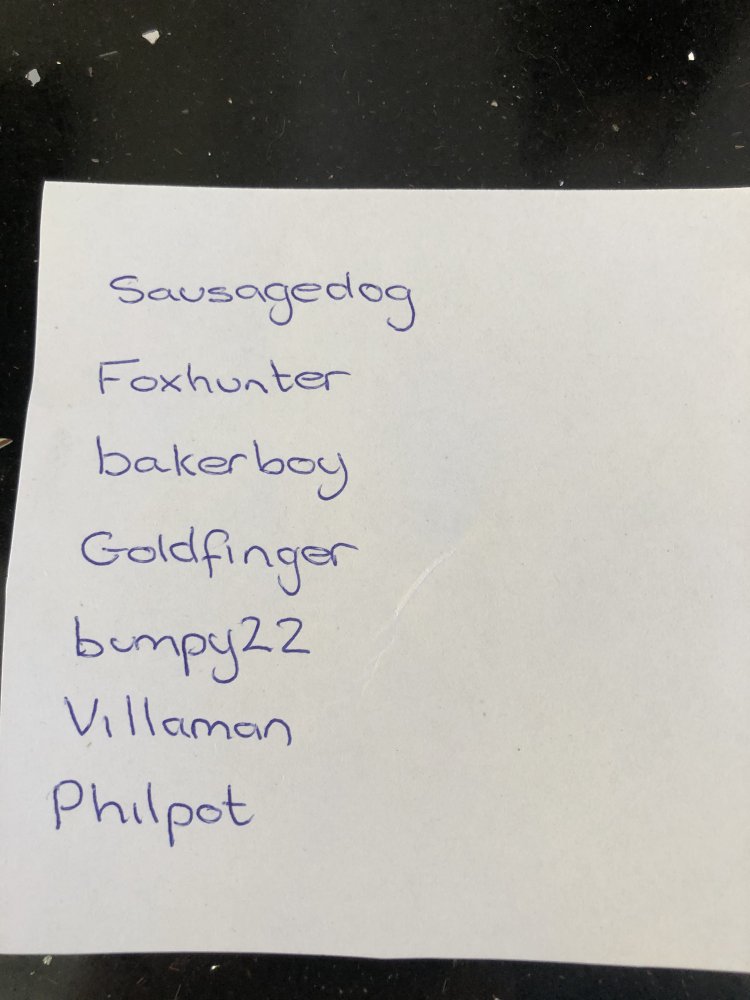 Sausagedog
Foxhunter
bakerboy
Goldfinger
bumpy22
Villaman
Philpot